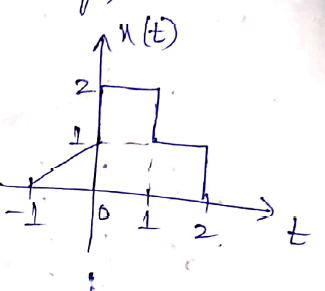 x(t)
2
1
-1 0 1 2 t